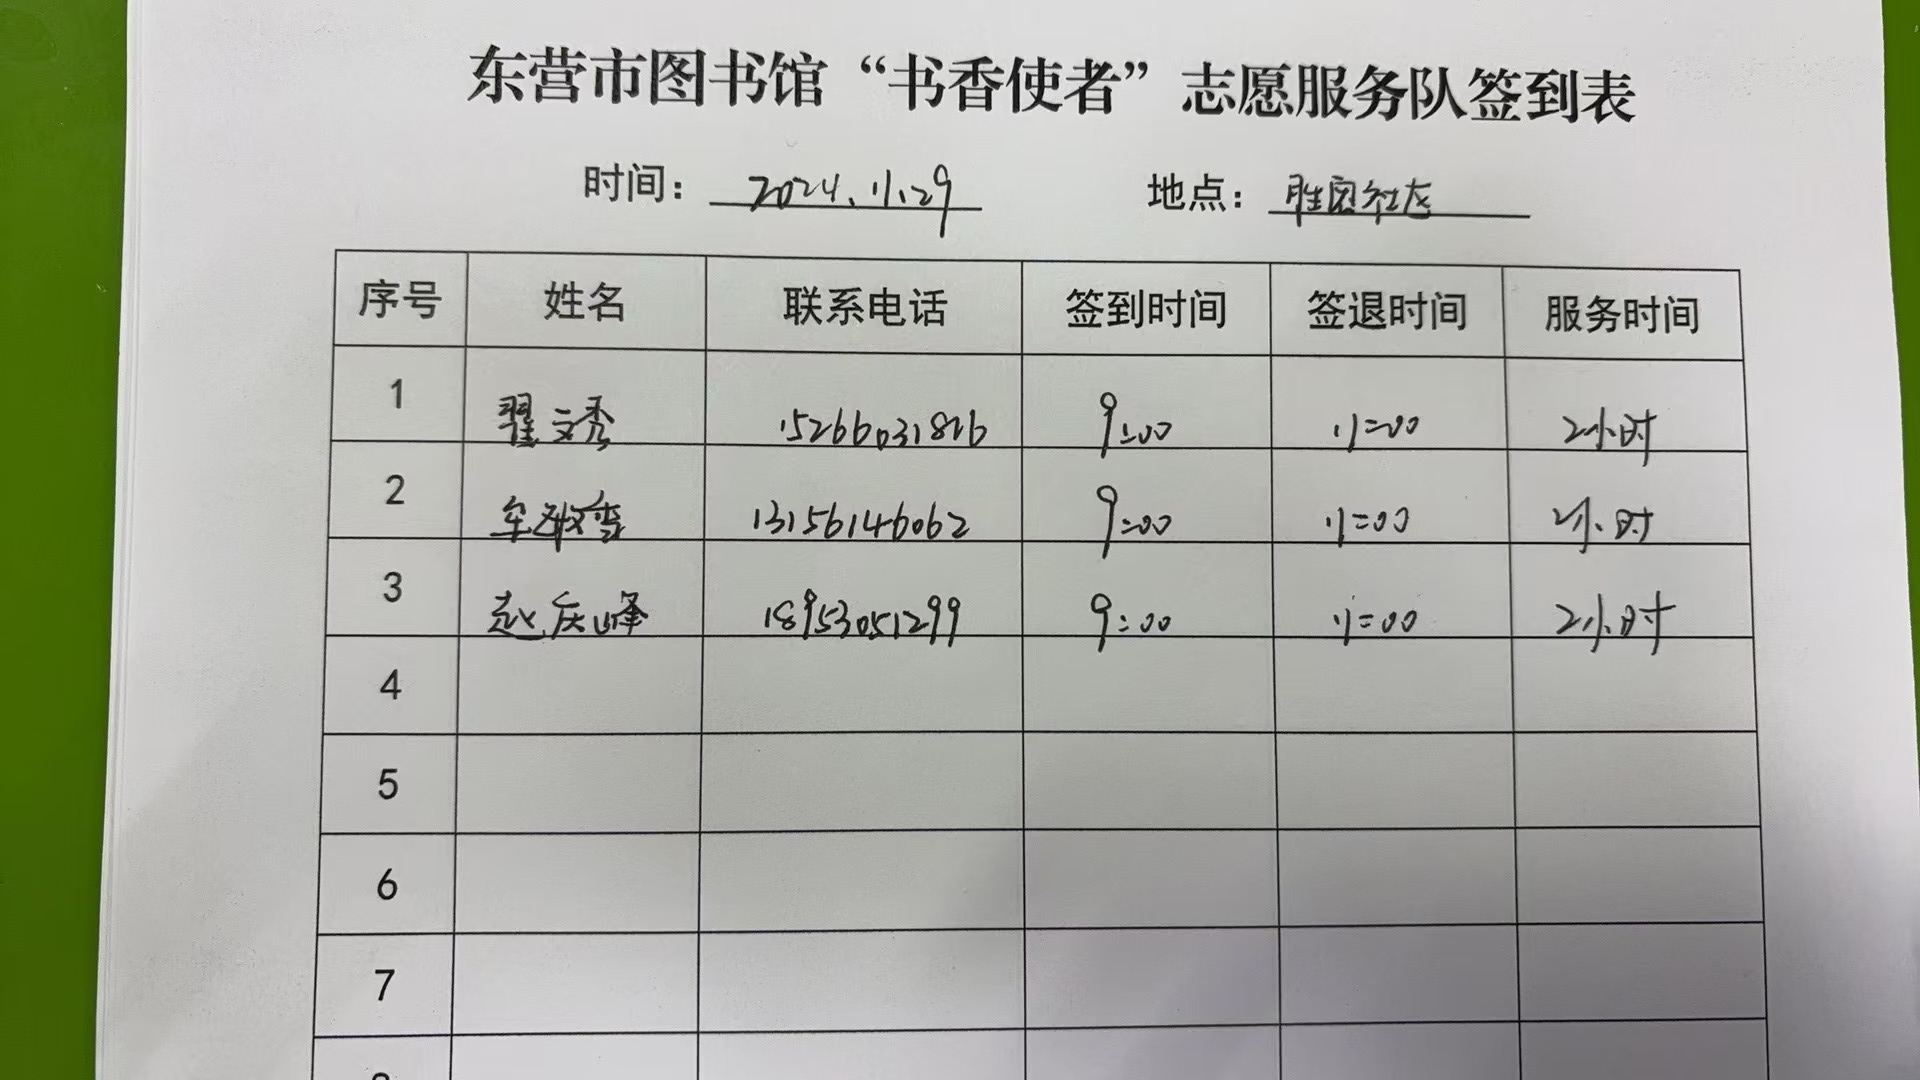 东营市图书馆“书香使者”志愿服务队签到表
时间： 2024.11.29 地点： 胜园社区
序号 姓名 联系电话 签到时间 签退时间 服务时间
1 翟文秀 15266031816 9:00 11:00 2小时
2 13156146062 9:00 11:00 2小时
3 赵庆峰 18953051299 9:00 11:00 2小时
4
5
6
7